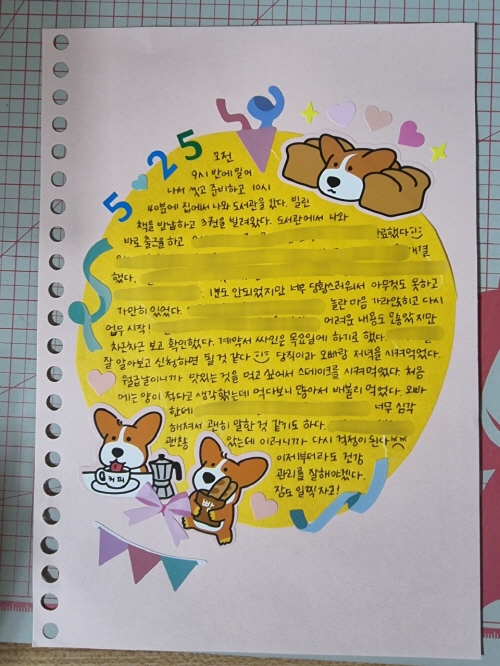 5 25
오전
9시 반에 일어
나서 씻고 준비하고 10시
40분에 집에서 나와 도서관을 갔다. 빌린
책을 반납하고 3권을 빌려왔다. 도서관에서 나와
바로 출근을 하고 료했다
해결
했다. 1분도 안되었지만 너무 당황스러워서 아무것도 못하고
가만히 있었다. 놀란 마음 가라앉히고 다시
업무 시작! 어려운 내용도 있었지만
차근차근 보고 확인했다. 계약서 싸인은 목요일에 하기로 했다.
잘 알아보고 신청하면 될 것 같다 당직이라 오빠랑 저녁을 시켜먹었다.
월급날이니까 맛있는 것을 먹고 싶어서 스테이크를 시켜먹었다. 처음
에는 양이 적다고 생각했는데 먹다보니 많아서 배불리 먹었다. 오빠
한테 너무 심각
해져서 괜히 말한 것 같기도 하다.
괜찮 았는데 이러니까 다시 걱정이 된다
이제부터라도 건강
관리를 잘해야겠다.
잠도 일찍 자고!
커피
빵